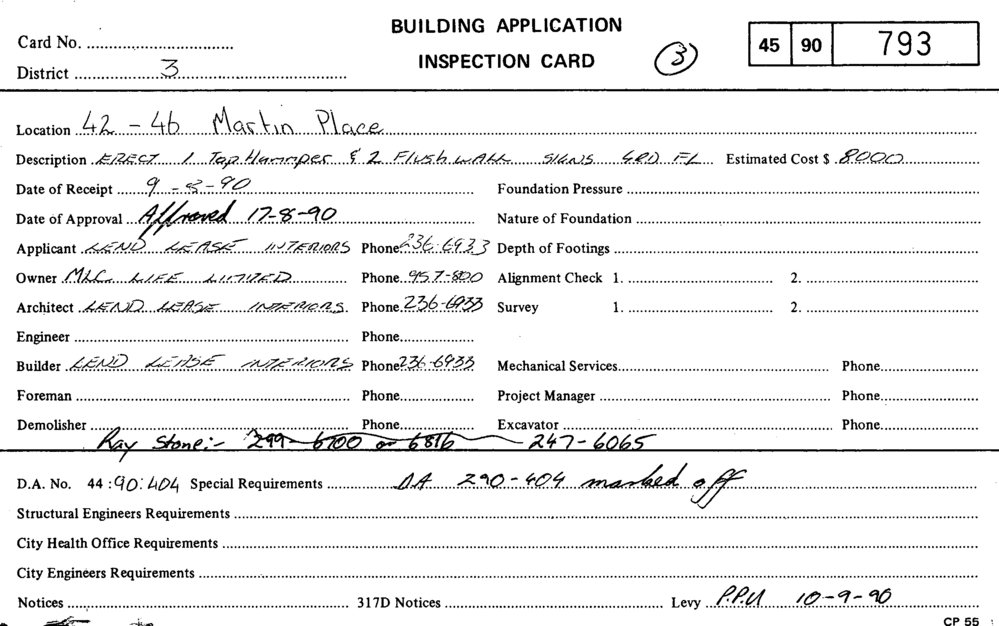 BUILDING APPLICATION
Card No.
INSPECTION CARD 3 45 90 793
District 3
Location 42 - 46 Martin Place
Description ERECT 1 Top Hammper & 2 Flush WALL SIGNS GRD FL Estimated Cost $ 8000
Date of Receipt 9 - 8 - 90 Foundation Pressure
Date of Approval Approved 17-8-90 Nature of Foundation
Applicant LEND LEASE INTERIORS Phone 236-6933 Depth of Footings
Owner MLC LIFE LIMITED Phone 957-800 Alignment Check 1. 2.
Architect LEND LEASE INTERIORS Phone 236-6933 Survey 1. 2.
Engineer Phone
Builder LEND LEASE INTERIORS Phone 236-6933 Mechanical Services Phone
Foreman Phone Project Manager Phone
Demolisher Phone Excavator Phone
Ray Stone:- 299-6700 or 6816 - 247-6065
D.A. No. 44 :90:404 Special Requirements DA 290-404 marked off
Structural Engineers Requirements
City Health Office Requirements
City Engineers Requirements
Notices 317D Notices Levy P.P.U 10-9-90
CP 55